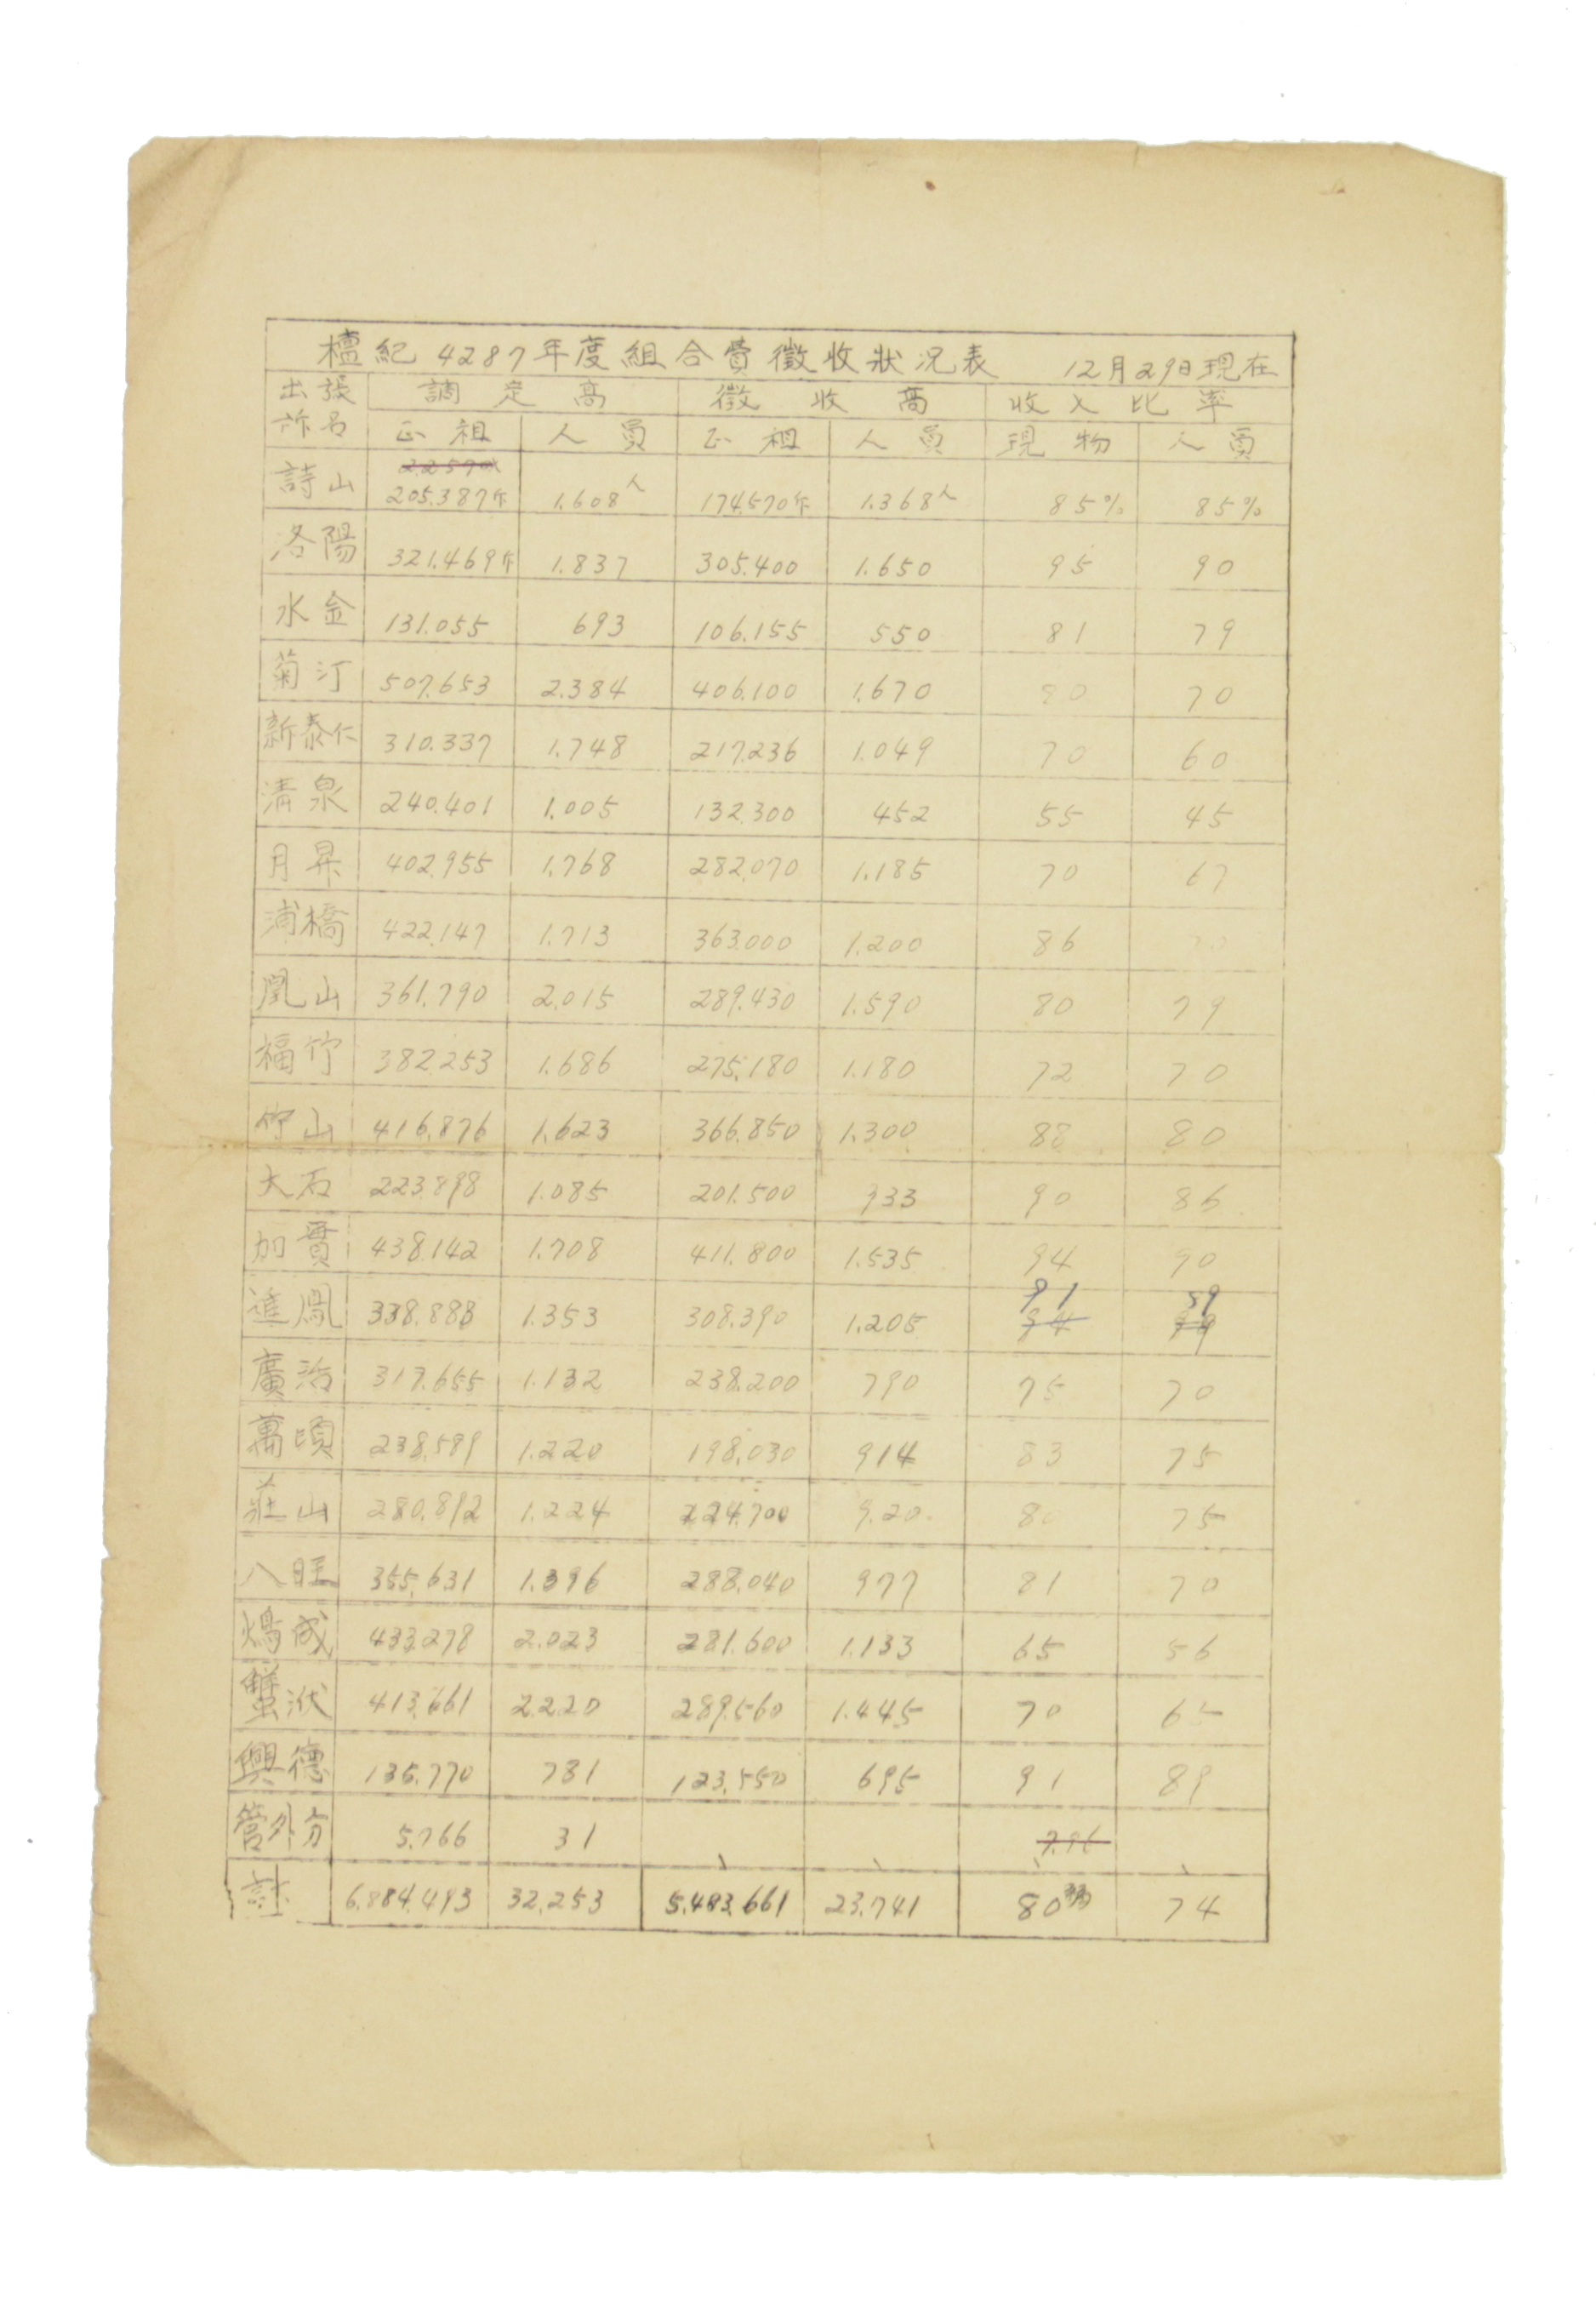 檀紀 4287年度組合費徵收狀況表 12月29日現在
出張所名 調定高 徵收高 收入比率
正租 人員 正租 人員 現物 人員
詩山 205.387斤 1.608人 174.570斤 1.368人 85% 85%
洛陽 321.469斤 1.837 305.400 1.650 95 90
水金 131.055 693 106.155 550 81 79
菊汀 507.653 2.384 406.100 1.670 80 70
新泰仁 310.337 1.748 217.236 1.049 70 60
清泉 240.401 1.005 132.300 452 55 45
月昇 402.955 1.768 282.070 1.185 70 67
浦橋 422.147 1.713 363.000 1.200 86 70
鳳山 361.790 2.015 289.430 1.590 80 79
福竹 382.253 1.686 275.180 1.180 72 70
竹山 416.876 1.623 366.850 1.300 88 80
大石 223.898 1.085 201.500 933 90 86
加實 438.142 1.708 411.800 1.535 94 90
進鳳 338.888 1.353 308.390 1.205 91 89
廣治 317.655 1.132 238.200 790 75 70
萬頃 238.589 1.220 198.030 914 83 75
莊山 280.892 1.224 224.700 9.20 80 75
八旺 355.631 1.396 288.040 977 81 70
成 433.278 2.023 281.600 1.133 65 56
蟹洑 413.661 2.220 289.560 1.445 70 65
興德 135.770 781 123.550 695 91 89
管外分 5.766 31
計 6.884.493 32.253 5.483.661 23.741 80 74